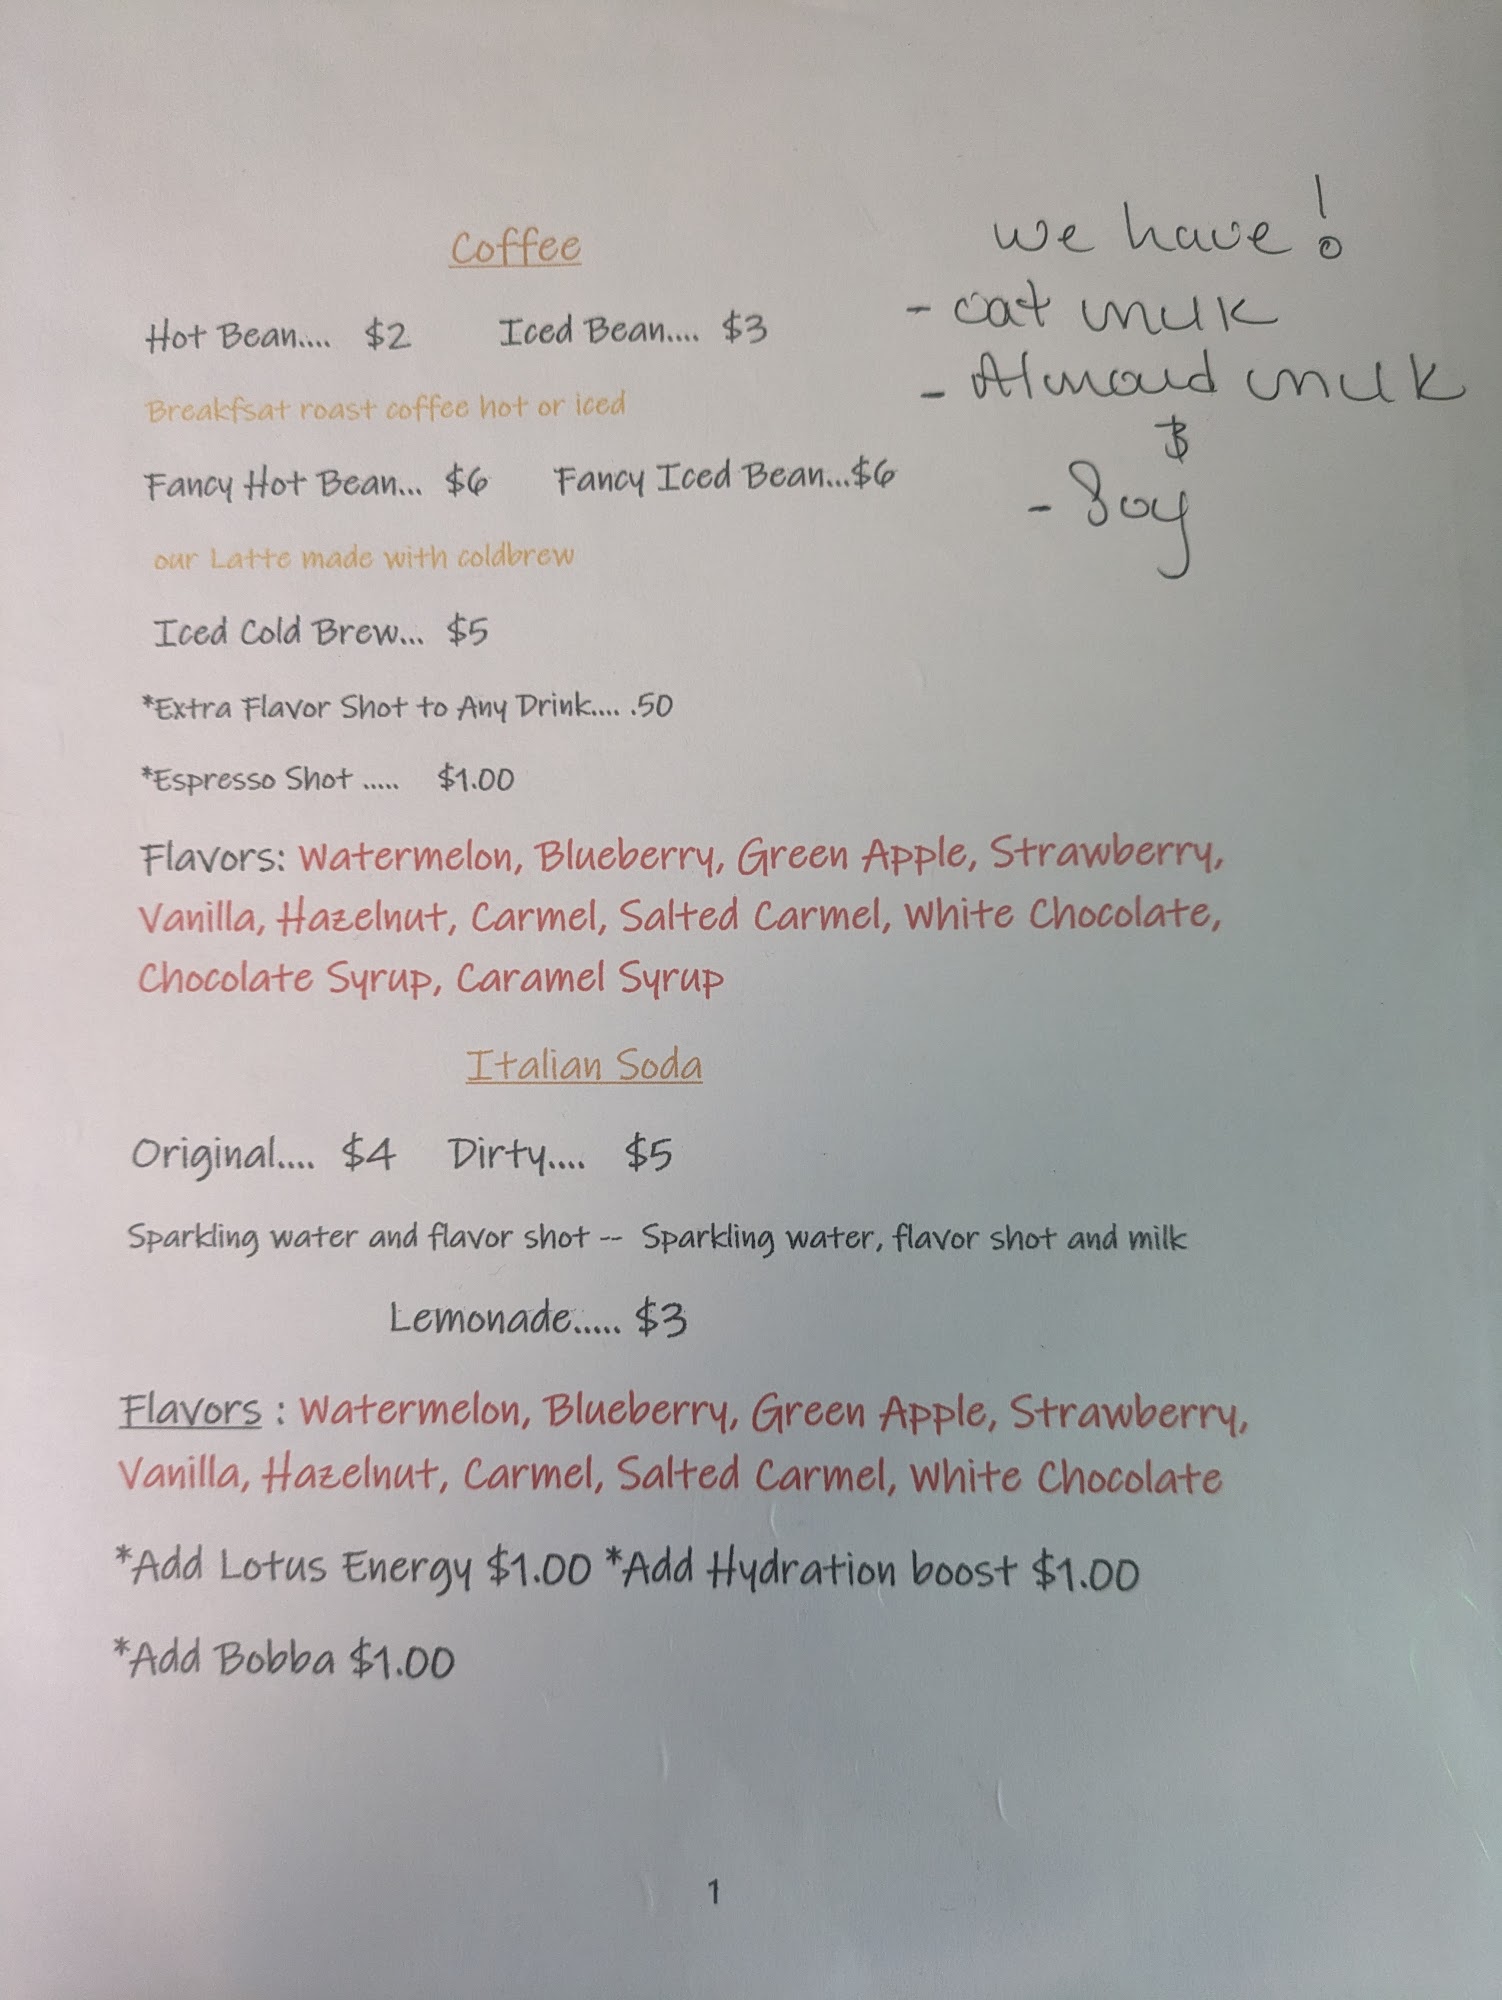 Coffee
Hot Bean.... $2 Iced Bean.... $3
Breakfsat roast coffee hot or iced
Fancy Hot Bean... $6 Fancy Iced Bean...$6
our Latte made with coldbrew
Iced Cold Brew... $5
*Extra Flavor Shot to Any Drink.... .50
*Espresso Shot ..... $1.00
we have!
- oat milk
- Almond milk
&
- Soy
Flavors: Watermelon, Blueberry, Green Apple, Strawberry,
Vanilla, Hazelnut, Carmel, Salted Carmel, White Chocolate,
Chocolate Syrup, Caramel Syrup
Italian Soda
Original.... $4 Dirty.... $5
Sparkling water and flavor shot -- Sparkling water, flavor shot and milk
Lemonade..... $3
Flavors : Watermelon, Blueberry, Green Apple, Strawberry,
Vanilla, Hazelnut, Carmel, Salted Carmel, White Chocolate
*Add Lotus Energy $1.00 *Add Hydration boost $1.00
*Add Bobba $1.00
1